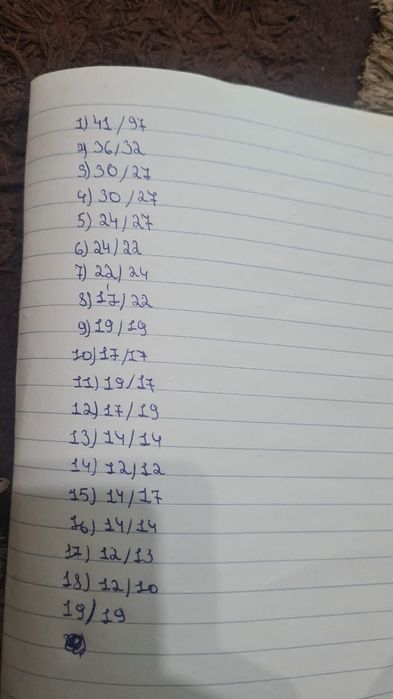 1) 41/97
2) 36/32
3) 30/27
4) 30/27
5) 24/27
6) 24/22
7) 22/24
8) 17/22
9) 19/19
10) 17/17
11) 19/17
12) 17/19
13) 14/14
14) 12/12
15) 14/17
16) 14/14
17) 12/13
18) 12/10
19/19